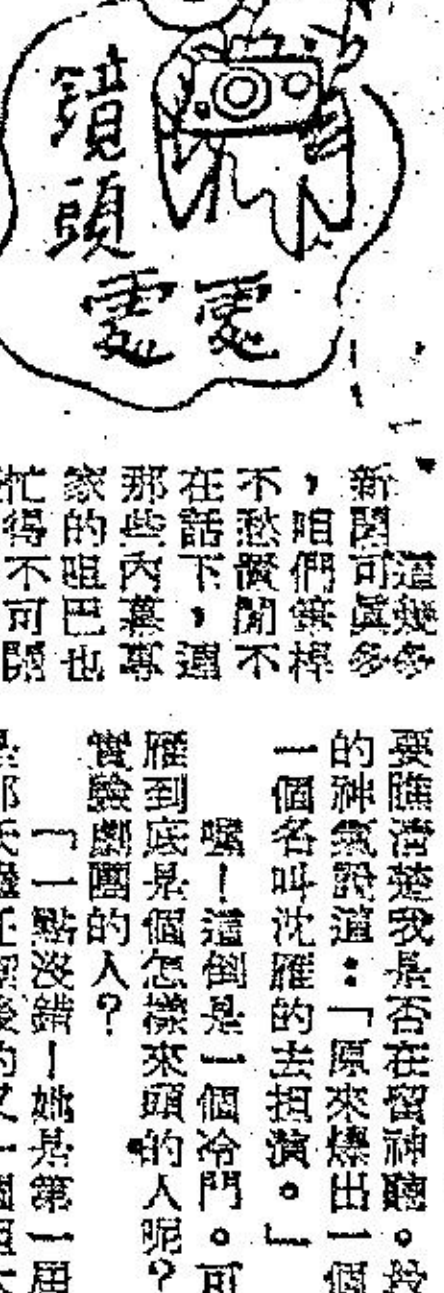 鏡頭
處處
這幾多
新聞可真多
，咱們筆桿
不愁賸閒不
在話下，連
那些內幕專
家的咀巴也
忙得不可開
要瞧清楚我是否在留神聽。於
的神氣說道：「原來爆出一個
一個名叫沈雁的去担演。」
嘿！這倒是一個冷門。可
雁到底是個怎樣來頭的人呢？
實驗劇團的人？
「一點沒錯！她是第一屆